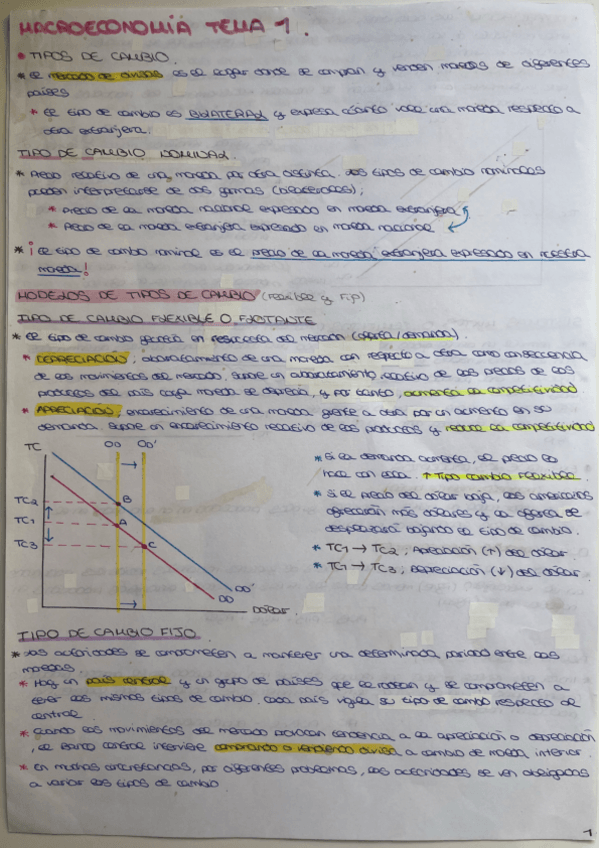 MACROECONOMÍA TEMA 1.
* TIPOS DE CAMBIO.
* El mercado de divisas es el lugar donde se compran y venden monedas de diferentes
países
* El tipo de cambio es BILATERAL y expresa cuánto vale una moneda respecto a
otra extranjera.
TIPO DE CAMBIO NOMINAL.
* Precio relativo de una moneda por otra distinta. Los tipos de cambio nominales
pueden interpretarse de dos formas (bilaterales);
* Precio de la moneda nacional expresado en moneda extranjera
* Precio de la moneda extranjera expresado en moneda nacional
* ¡El tipo de cambio nominal es el precio de la moneda extranjera expresado en nuestra
moneda!
MODELOS DE TIPOS DE CAMBIO (flexible y fijo)
TIPO DE CAMBIO FLEXIBLE O FLOTANTE
* El tipo de cambio generado en respuesta del mercado (oferta/demanda).
* DEPRECIACIÓN; abaratamiento de una moneda con respecto a otra como consecuencia
de los movimientos del mercado; supone un abaratamiento relativo de los precios de los
productos del país cuya moneda se deprecia, y por tanto, aumenta la competitividad.
* APRECIACIÓN; encarecimiento de una moneda frente a otra por un aumento en su
demanda, supone un encarecimiento relativo de los productos y reduce la competitividad
TC
OO OO'
TC2
TC1
TC3
B
A
C
DD'
DD
Dólar.
* Si la demanda aumenta, el precio lo
hace con ella. ↑ Tipo cambio flexible.
* Si el precio del dólar baja, los
más dólares y la oferta se
desplazará bajando el tipo de cambio.
* TC1 → TC2; Apreciación (↑) del dólar.
* TC1 → TC3; Depreciación (↓) del dólar.
TIPO DE CAMBIO FIJO.
* Las autoridades se comprometen a mantener una determinada paridad entre las
monedas.
* Hay un país central y un grupo de países que le rodean y se comprometen a
tener los mismos tipos de cambio. Cada país vigila su tipo de cambio respecto del
central.
* Cuando los movimientos del mercado provocan tendencia a la apreciación o depreciación
, el Banco Central interviene comprando o vendiendo divisa a cambio de moneda interior.
* En muchas circunstancias, por diferentes problemas, las autoridades se ven obligadas
a variar los tipos de cambio
1